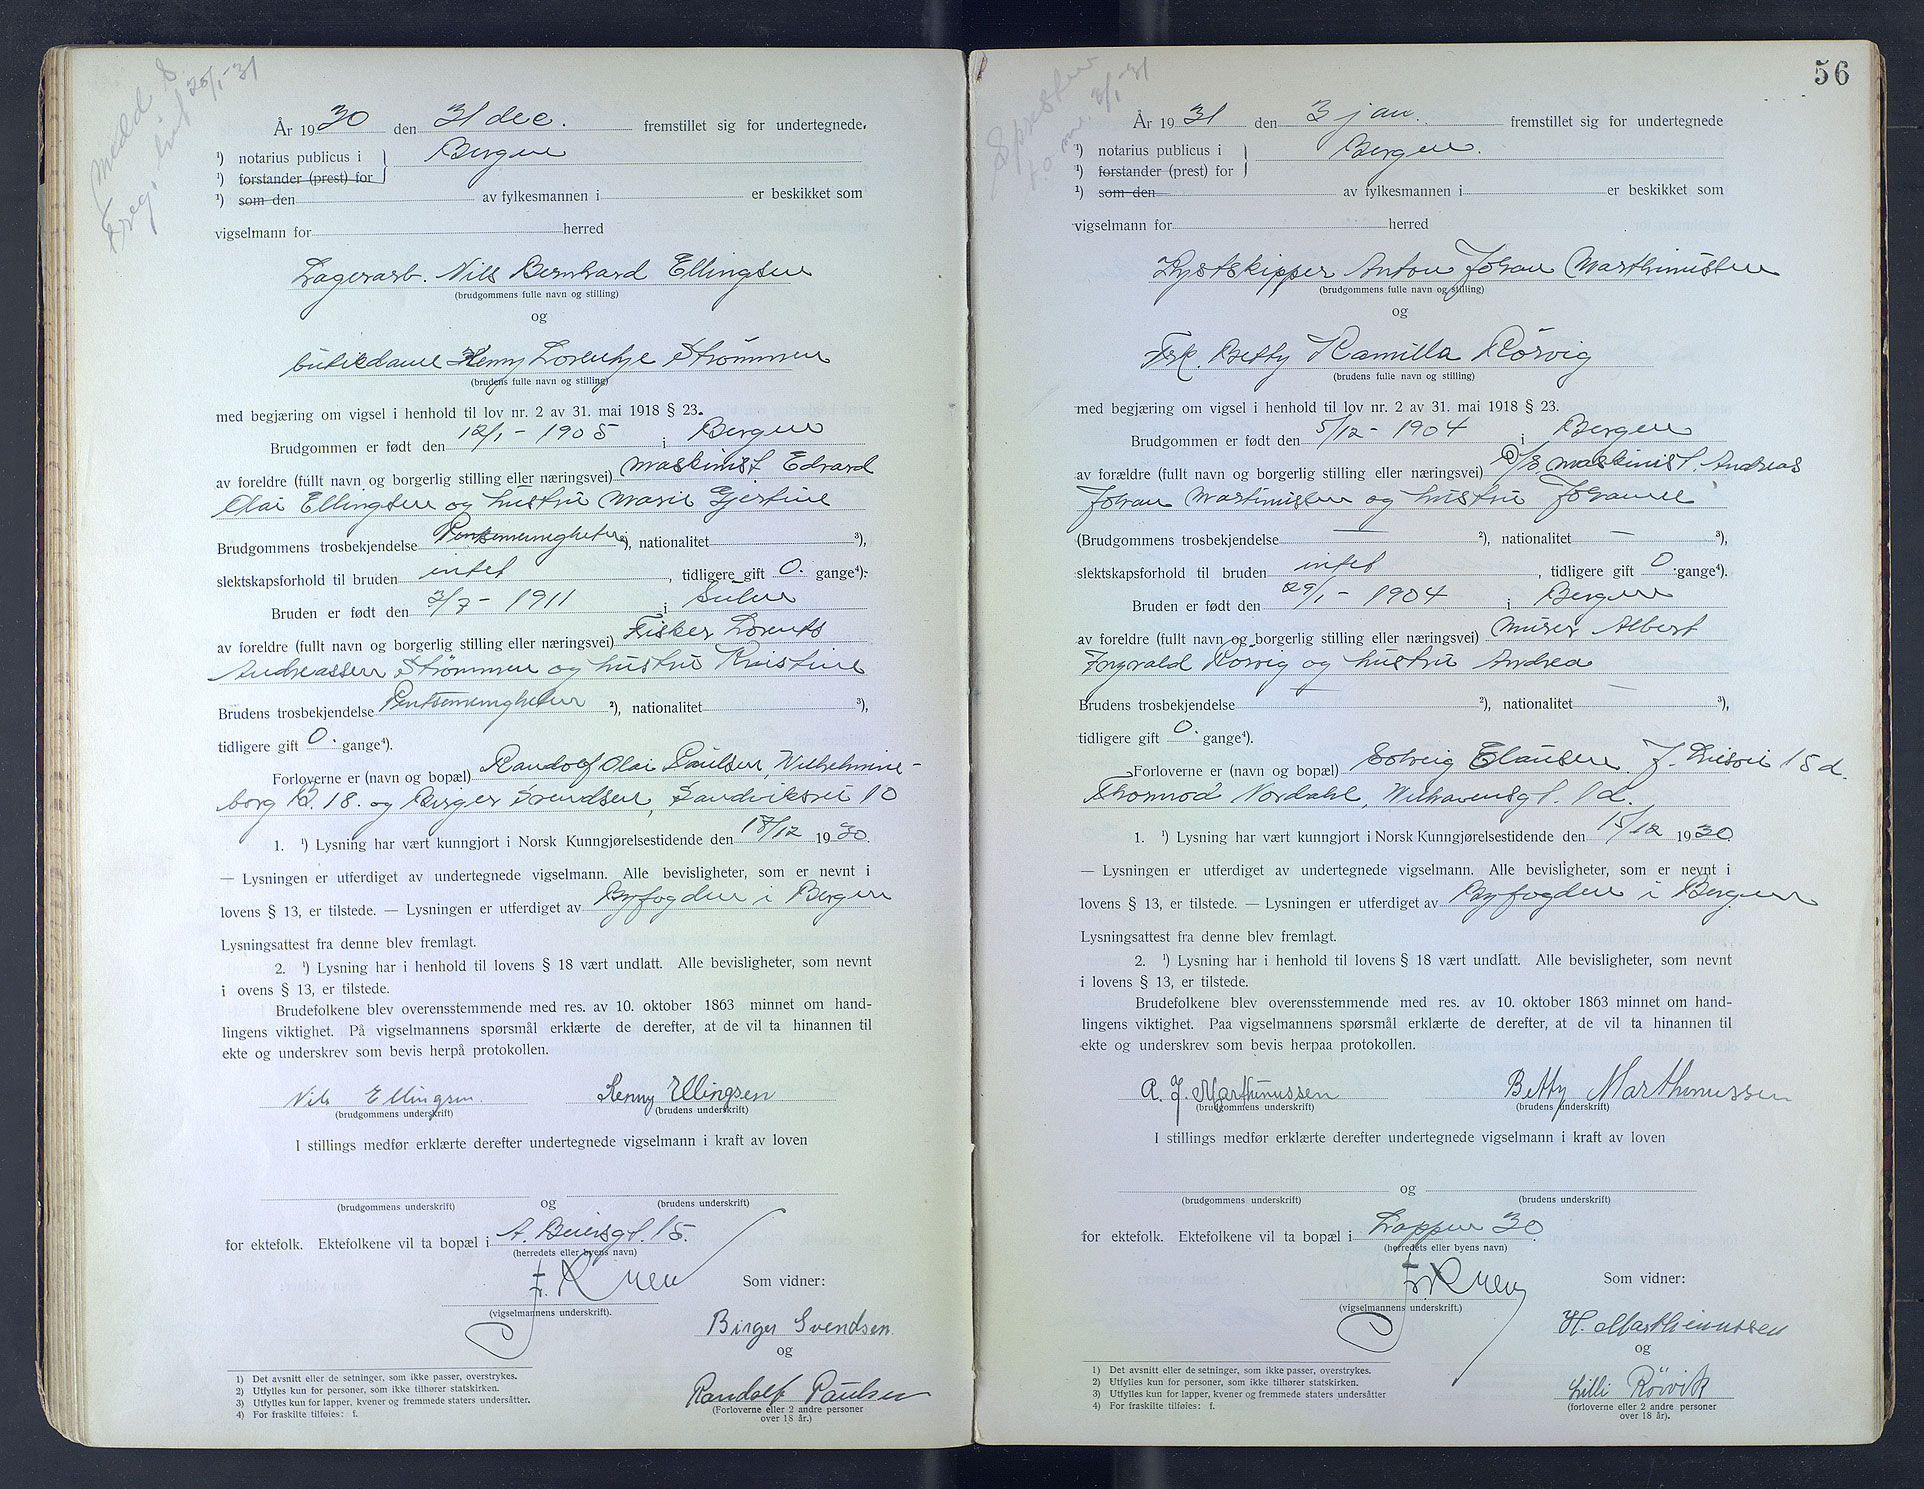 Meld S 20/1-31
Freg. but
År 1930 den 31 dec. fremstillet sig for undertegnede,
¹) notarius publicus i } Bergen
¹) forstander (prest) for
¹) som den av fylkesmannen i er beskikket som
vigselmann for herred
Lagerarb. Nils Bernhard Ellingsen
(brudgommens fulle navn og stilling)
og
butikdame Henny Lorentje Strømmen
(brudens fulle navn og stilling)
med begjæring om vigsel i henhold til lov nr. 2 av 31. mai 1918 § 23.
Brudgommen er født den 12/1 - 1905 i Bergen
av foreldre (fullt navn og borgerlig stilling eller næringsvei) maskinist Edvard
Olai Ellingsen og hustru Marie Gjertine
Brudgommens trosbekjendelse Pinsemenigheten ²), nationalitet ³),
slektskapsforhold til bruden intet, tidligere gift 0. gange⁴).
Bruden er født den 3/7 - 1911 i Sulen
av foreldre (fullt navn og borgerlig stilling eller næringsvei) Fisker Lorents
Andreassen Strømmen og hustru Kristine
Brudens trosbekjendelse Pintsemenigheten ²), nationalitet ³),
tidligere gift 0. gange⁴).
Forloverne er (navn og bopæl) Randolf Olai Paulsen, Wilhelmine-
borg B. 18. og Birger Svendsen, Sandviksvei 10
1. ¹) Lysning har vært kunngjort i Norsk Kunngjørelsestidende den 17/12 1930.
— Lysningen er utferdiget av undertegnede vigselmann. Alle bevisligheter, som er nevnt i
lovens § 13, er tilstede. — Lysningen er utferdiget av Byfogden i Bergen
Lysningsattest fra denne blev fremlagt.
2. ¹) Lysning har i henhold til lovens § 18 vært undlatt. Alle bevisligheter, som nevnt
i ovens § 13, er tilstede.
Brudefolkene blev overensstemmende med res. av 10. oktober 1863 minnet om hand-
lingens viktighet. På vigselmannens spørsmål erklærte de derefter, at de vil ta hinannen til
ekte og underskrev som bevis herpå protokollen.
Nils Ellingsen. Henny Ellingsen
(brudgommens underskrift) (brudens underskrift)
I stillings medfør erklærte derefter undertegnede vigselmann i kraft av loven
og
(brudgommens underskrift) (brudens underskrift)
for ektefolk. Ektefolkene vil ta bopæl i A. Beiersgt. 15.
(herredets eller byens navn)
Som vidner:
(vigselmannens underskrift).
Birger Svendsen
og
Randolf Paulsen
(Forloverne eller 2 andre personer
over 18 år.)
1) Det avsnitt eller de setninger, som ikke passer, overstrykes.
2) Utfylles kun for personer, som ikke tilhører statskirken.
3) Utfylles kun for lapper, kvener og fremmede staters undersåtter.
4) For fraskilte tilføies: f.
56
3/1-31
År 1931 den 3 jan. fremstillet sig for undertegnede
¹) notarius publicus i } Bergen.
¹) forstander (prest) for
¹) som den av fylkesmannen i er beskikket som
vigselmann for herred
Kystskipper Anton Johan Marthinussen
(brudgommens fulle navn og stilling)
og
Frk. Betty Kamilla Rörvig
(brudens fulle navn og stilling)
med begjæring om vigsel i henhold til lov nr. 2 av 31. mai 1918 § 23.
Brudgommen er født den 5/12 - 1904 i Bergen
av forældre (fullt navn og borgerlig stilling eller næringsvei) D/S maskinist. Andreas
Johan Martinussen og hustru Johanne
(Brudgommens trosbekjendelse — ²), nationalitet — ³),
slektskapsforhold til bruden intet, tidligere gift 0. gange⁴).
Bruden er født den 29/1 - 1904 i Bergen
av foreldre (fullt navn og borgerlig stilling eller næringsvei) murer Albert
Ingvald Rörvig og hustru Andrea
Brudens trosbekjendelse — ²), nationalitet — ³),
tidligere gift 0. gange⁴).
Forloverne er (navn og bopæl) Solveig Clausen. 15 d.
Thormod Nordahl, 1 d.
1. ¹) Lysning har vært kunngjort i Norsk Kunngjørelsestidende den 15/12 1930
— Lysningen er utferdiget av undertegnede vigselmann. Alle bevisligheter, som er nevnt i
lovens § 13, er tilstede. — Lysningen er utferdiget av Byfogden i Bergen
Lysningsattest fra denne blev fremlagt.
2. ¹) Lysning har i henhold til lovens § 18 vært undlatt. Alle bevisligheter, som nevnt
i lovens § 13, er tilstede.
Brudefolkene blev overensstemmende med res. av 10. oktober 1863 minnet om hand-
lingens viktighet. Paa vigselmannens spørsmål erklærte de derefter, at de vil ta hinannen til
ekte og underskrev som bevis herpaa protokollen.
A. J. Marthinussen Betty Marthinussen
(brudgommens underskrift) (brudens underskrift)
I stillings medfør erklærte derefter undertegnede vigselmann i kraft av loven
og
(brudgommens underskrift) (brudens underskrift)
for ektefolk. Ektefolkene vil ta bopæl i Lappen 30
(herredets eller byens navn)
Som vidner:
(vigselmannens underskrift.)
H. Marthinussen
og
Lilli Rörvik
(forloverne eller 2 andre personer
over 18 år).
1) Det avsnitt eller de setninger, som ikke passer, overstrykes.
2) Utfylles kun for personer, som ikke tilhører statskirken.
3) Utfylles kun for lapper, kvener og fremmede staters undersåtter
4) For fraskilte tilføies: f.